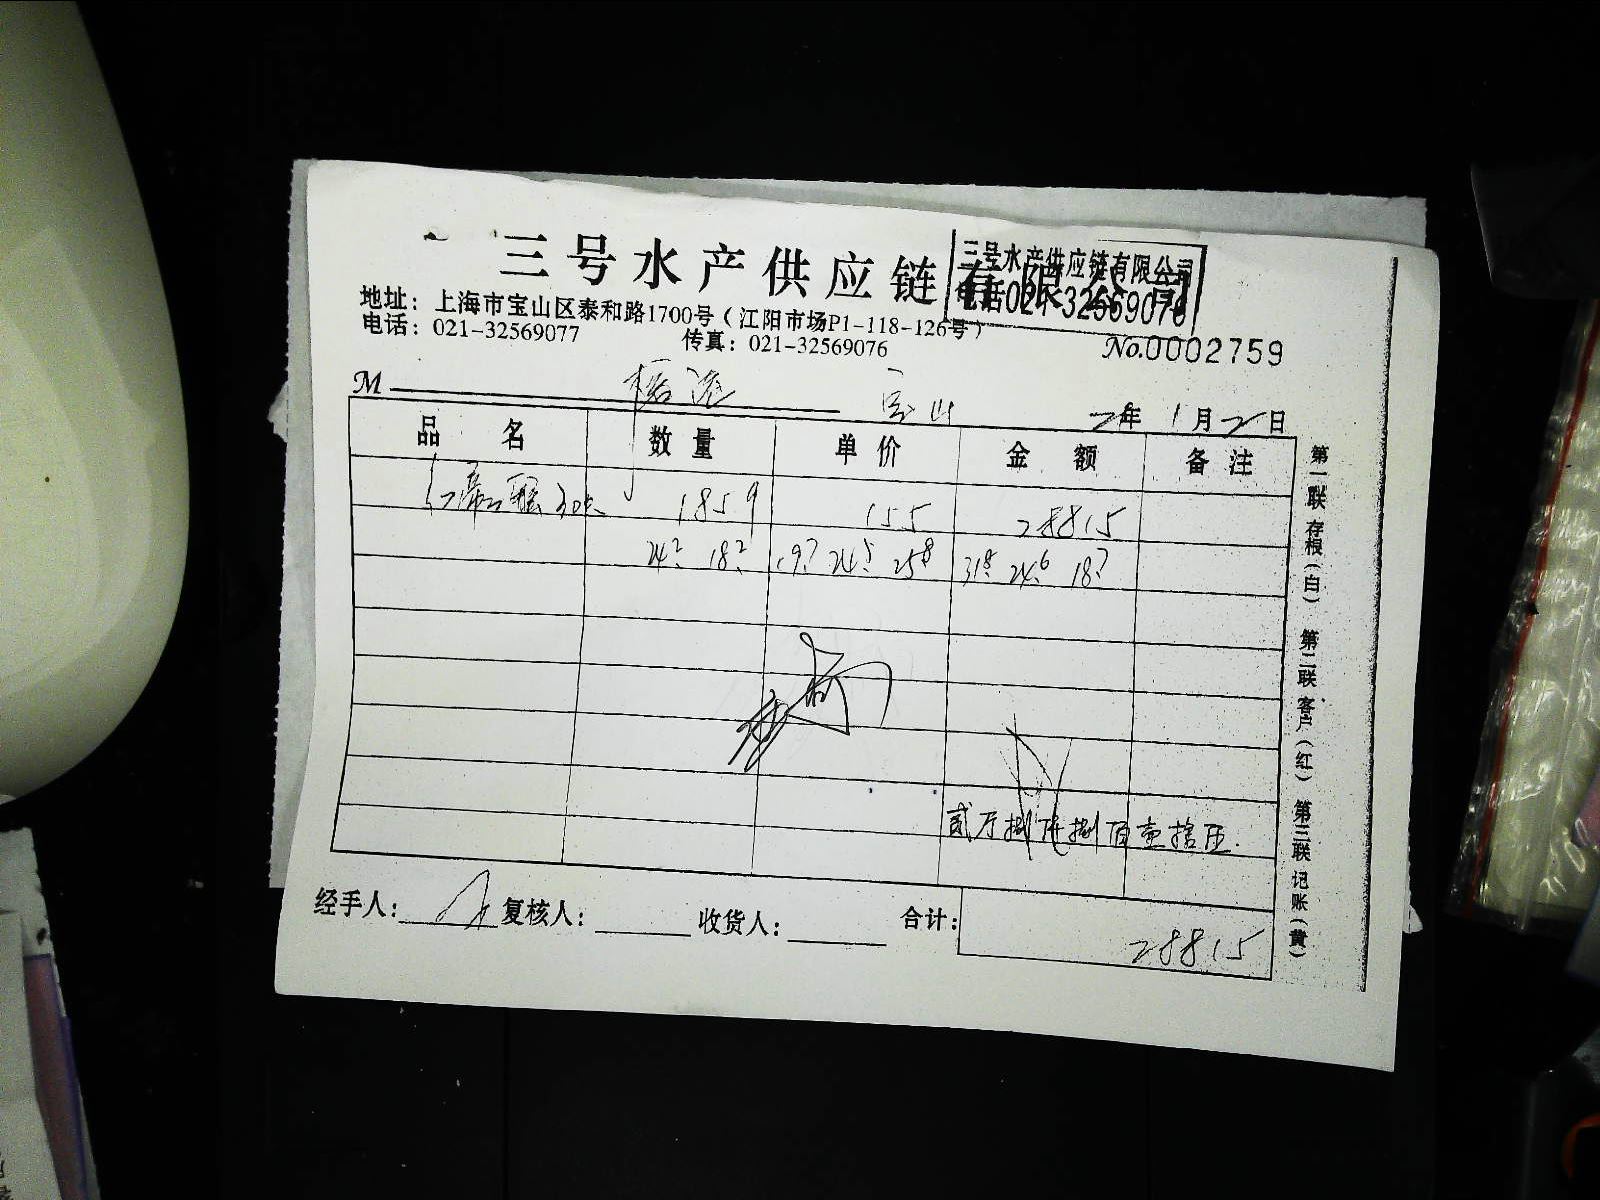 三号水产供应链有限公司
三号水产供应链有限公司
电话021-32569076
地址：上海市宝山区泰和路1700号（江阳市场P1-118-126号）
电话：021-32569077 传真：021-32569076
No.0002759
M 宝山 年 1月2日
品名 数量 单价 金额 备注
185.9 155 28815
24.2 18.2 19.7 24.5 25.8 31.8 24.6 18.7
贰万捌仟捌佰壹拾伍
经手人： 复核人： 收货人： 合计： 28815
第一联 存根（白） 第二联 客户（红） 第三联 记账（黄）